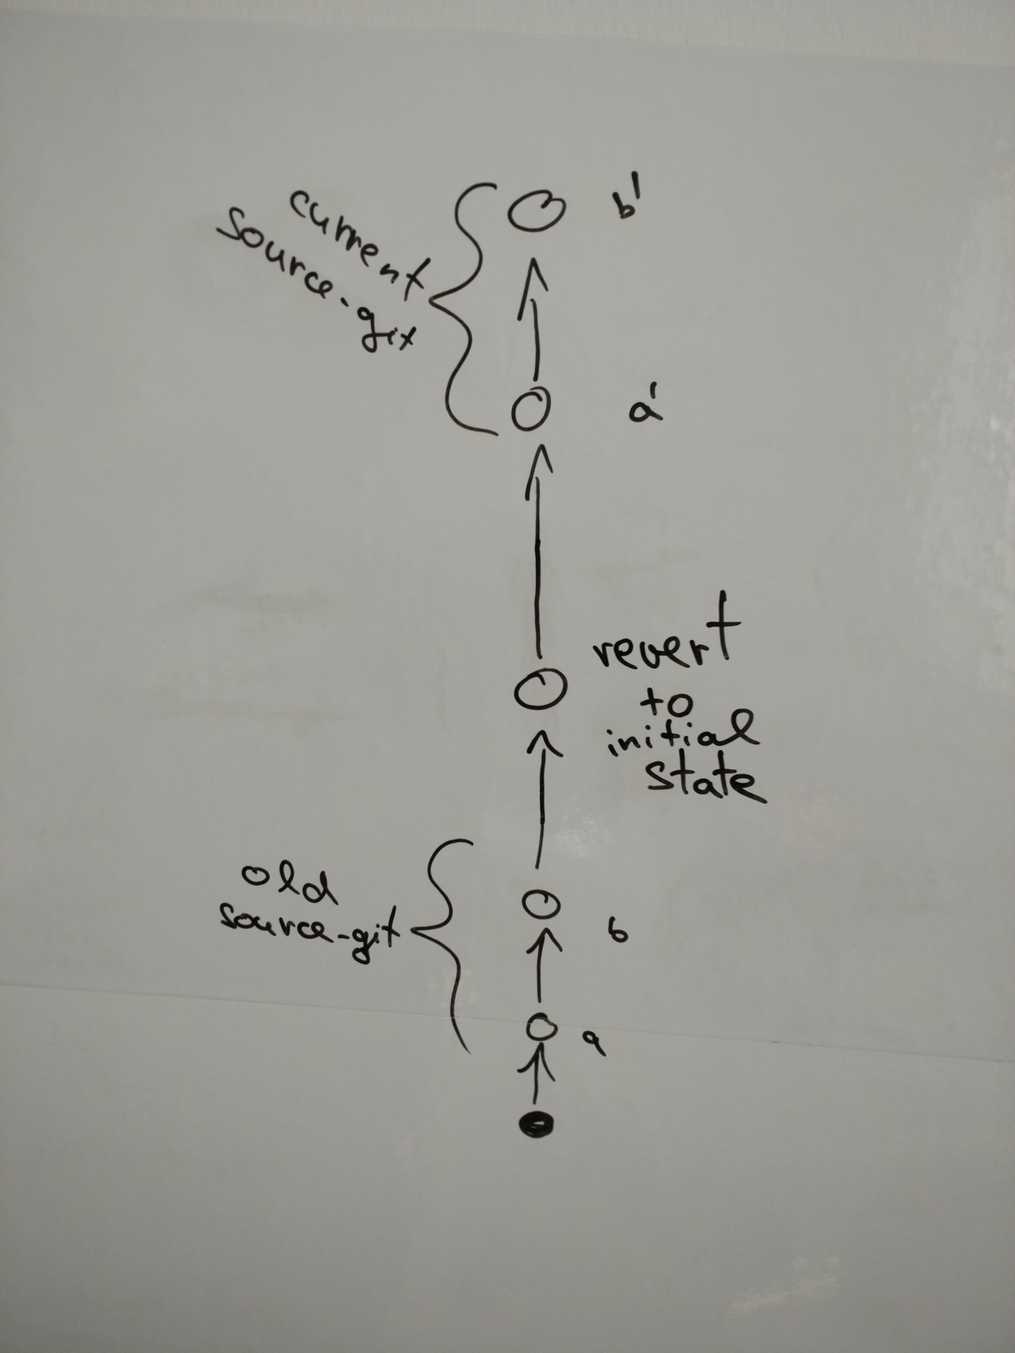 b'
current
source-git
a'
revert
to
initial
state
old
source-git
b
a